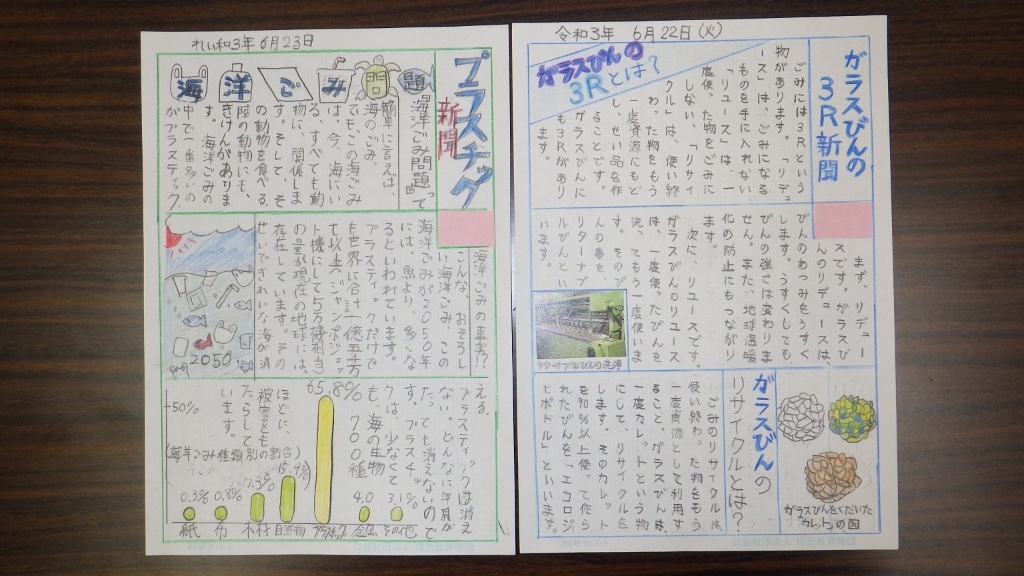 れい和3年 6月23日
プラスチック
新聞
海洋ごみ問題
「海洋ごみ問題」って
簡単に言えば、
海のごみ。
でもこの海ごみ
は、今、海にい
る、すべても動
物に、関係しま
す。そして、そ
の動物を食べる、
陸の動物にも、
きけんがありま
す。海洋ごみの
中で一番多いの
がプラスティック
海洋ごみの事実!?
こんな、おそろし
い海洋ごみ、この
海洋ごみが2050年
には、魚より、多くな
るといわれています。
プラスティックだけで
も世界に合計一億五千万
て以上(ジャンボジェッ
ト機にして5万機相当)
の量が現在の地球には、
存在しています。その
せいできれいな海が消
2050
える。
プラスティックは消え
ない。どんなに年月が
たっても消えないので
す。プラスチッ
クは、少なくて
も、海の生物
700種
ほどに、
被害をも
たらして
います。
(海洋ごみ種類別の割合)
50%
0.3%
0.8%
7.3%
65.8%
4.0
3.1
紙
布
木材
自然物
プラスチック
金属
その他
令和3年 6月22日(火)
ガラスびんの
3R新聞
ガラスびんの
3Rとは?
ごみには3Rという
物があります。「リデュ
ース」は、ごみになる
ものを手に入れない、
「リユース」は、一
度使った物をごみに
しない、「リサイ
クル」は、使い終
わった物をもう
一度資源にもど
し、せい品を作
ることです。
ガラスびんに
も3Rがあり
ます。
まず、リデュー
スです。ガラスび
んのリデュースは、
びんのあつみをうすく
します。うすくしても、
びんの強さは変わりま
せん。また、地球温暖
化の防止にもつながり
ます。
次に、リユースです。
ガラスびんのリユース
は、一度使ったびんを
洗って、もう一度使いま
す。そのび
んの事を、
リターナブ
ルびんとい
います。
リターナブルびんの洗浄
ガラスびんの
リサイクルとは?
ごみのリサイクルは、
使い終わった物をもう
一度資源として利用す
ること。ガラスびんは、
一度カレットという物
にして、リサイクルを
します。そのカレット
を90%以上使って作ら
れたびんを「エコロジ
ーボトル」といいます。
ガラスびんをくだいた
カレットの図